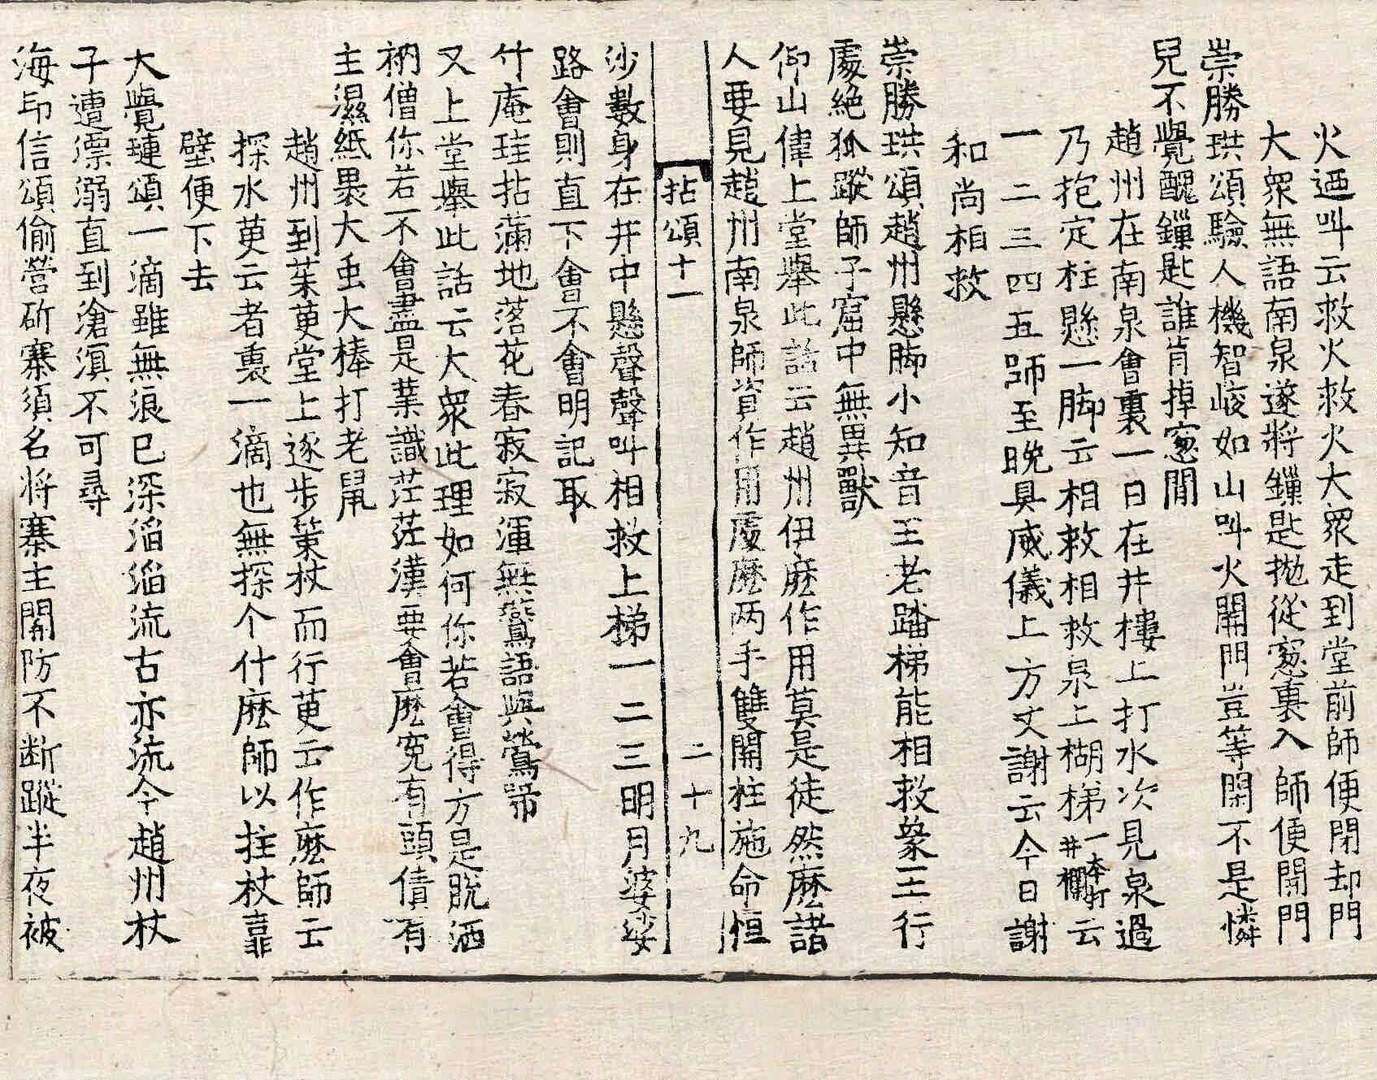 火迺叫云救火救火大衆走到堂前師便閉却門
大衆無語南泉遂將鏁匙抛從窓裏入師便開門
崇勝珙頌驗人機智峻如山叫火開門豈等閑不是憐
兒不覺醜鏁匙誰肯掉窓閒
趙州在南泉會裏一日在井樓上打水次見泉過
乃抱定柱懸一脚云相救相救泉上楜梯一本打井欄云
一二三四五師至晚具威儀上方丈謝云今日謝
和尚相救
崇勝珙頌趙州懸脚小知音王老踏梯能相救象王行
處絶狐蹤師子窟中無異獸
仰山偉上堂舉此話云趙州伊麽作用莫是徒然麽諸
人要見趙州南泉師資作用處麽两手雙開柱施命恒
拈頌十一 二十九
沙數身在井中懸聲聲叫相救上梯一二三明月婆娑
路會則直下會不會明記取
竹庵珪拈滿地落花春寂寂渾無鷰語與鶯啼
又上堂舉此話云大衆此理如何你若會得方是脫洒
衲僧你若不會盡是業識茫茫漢要會麽寃有頭債有
主濕紙裹大虫大棒打老鼠
趙州到茱萸堂上逐步策杖而行萸云作麽師云
探水萸云者裏一滴也無探个什麽師以拄杖靠
壁便下去
大覺璉頌一滴雖無浪已深滔滔流古亦流今趙州杖
子遭漂溺直到滄溟不可尋
海印信頌偷營斫寨須名將寨主開防不断蹤半夜被